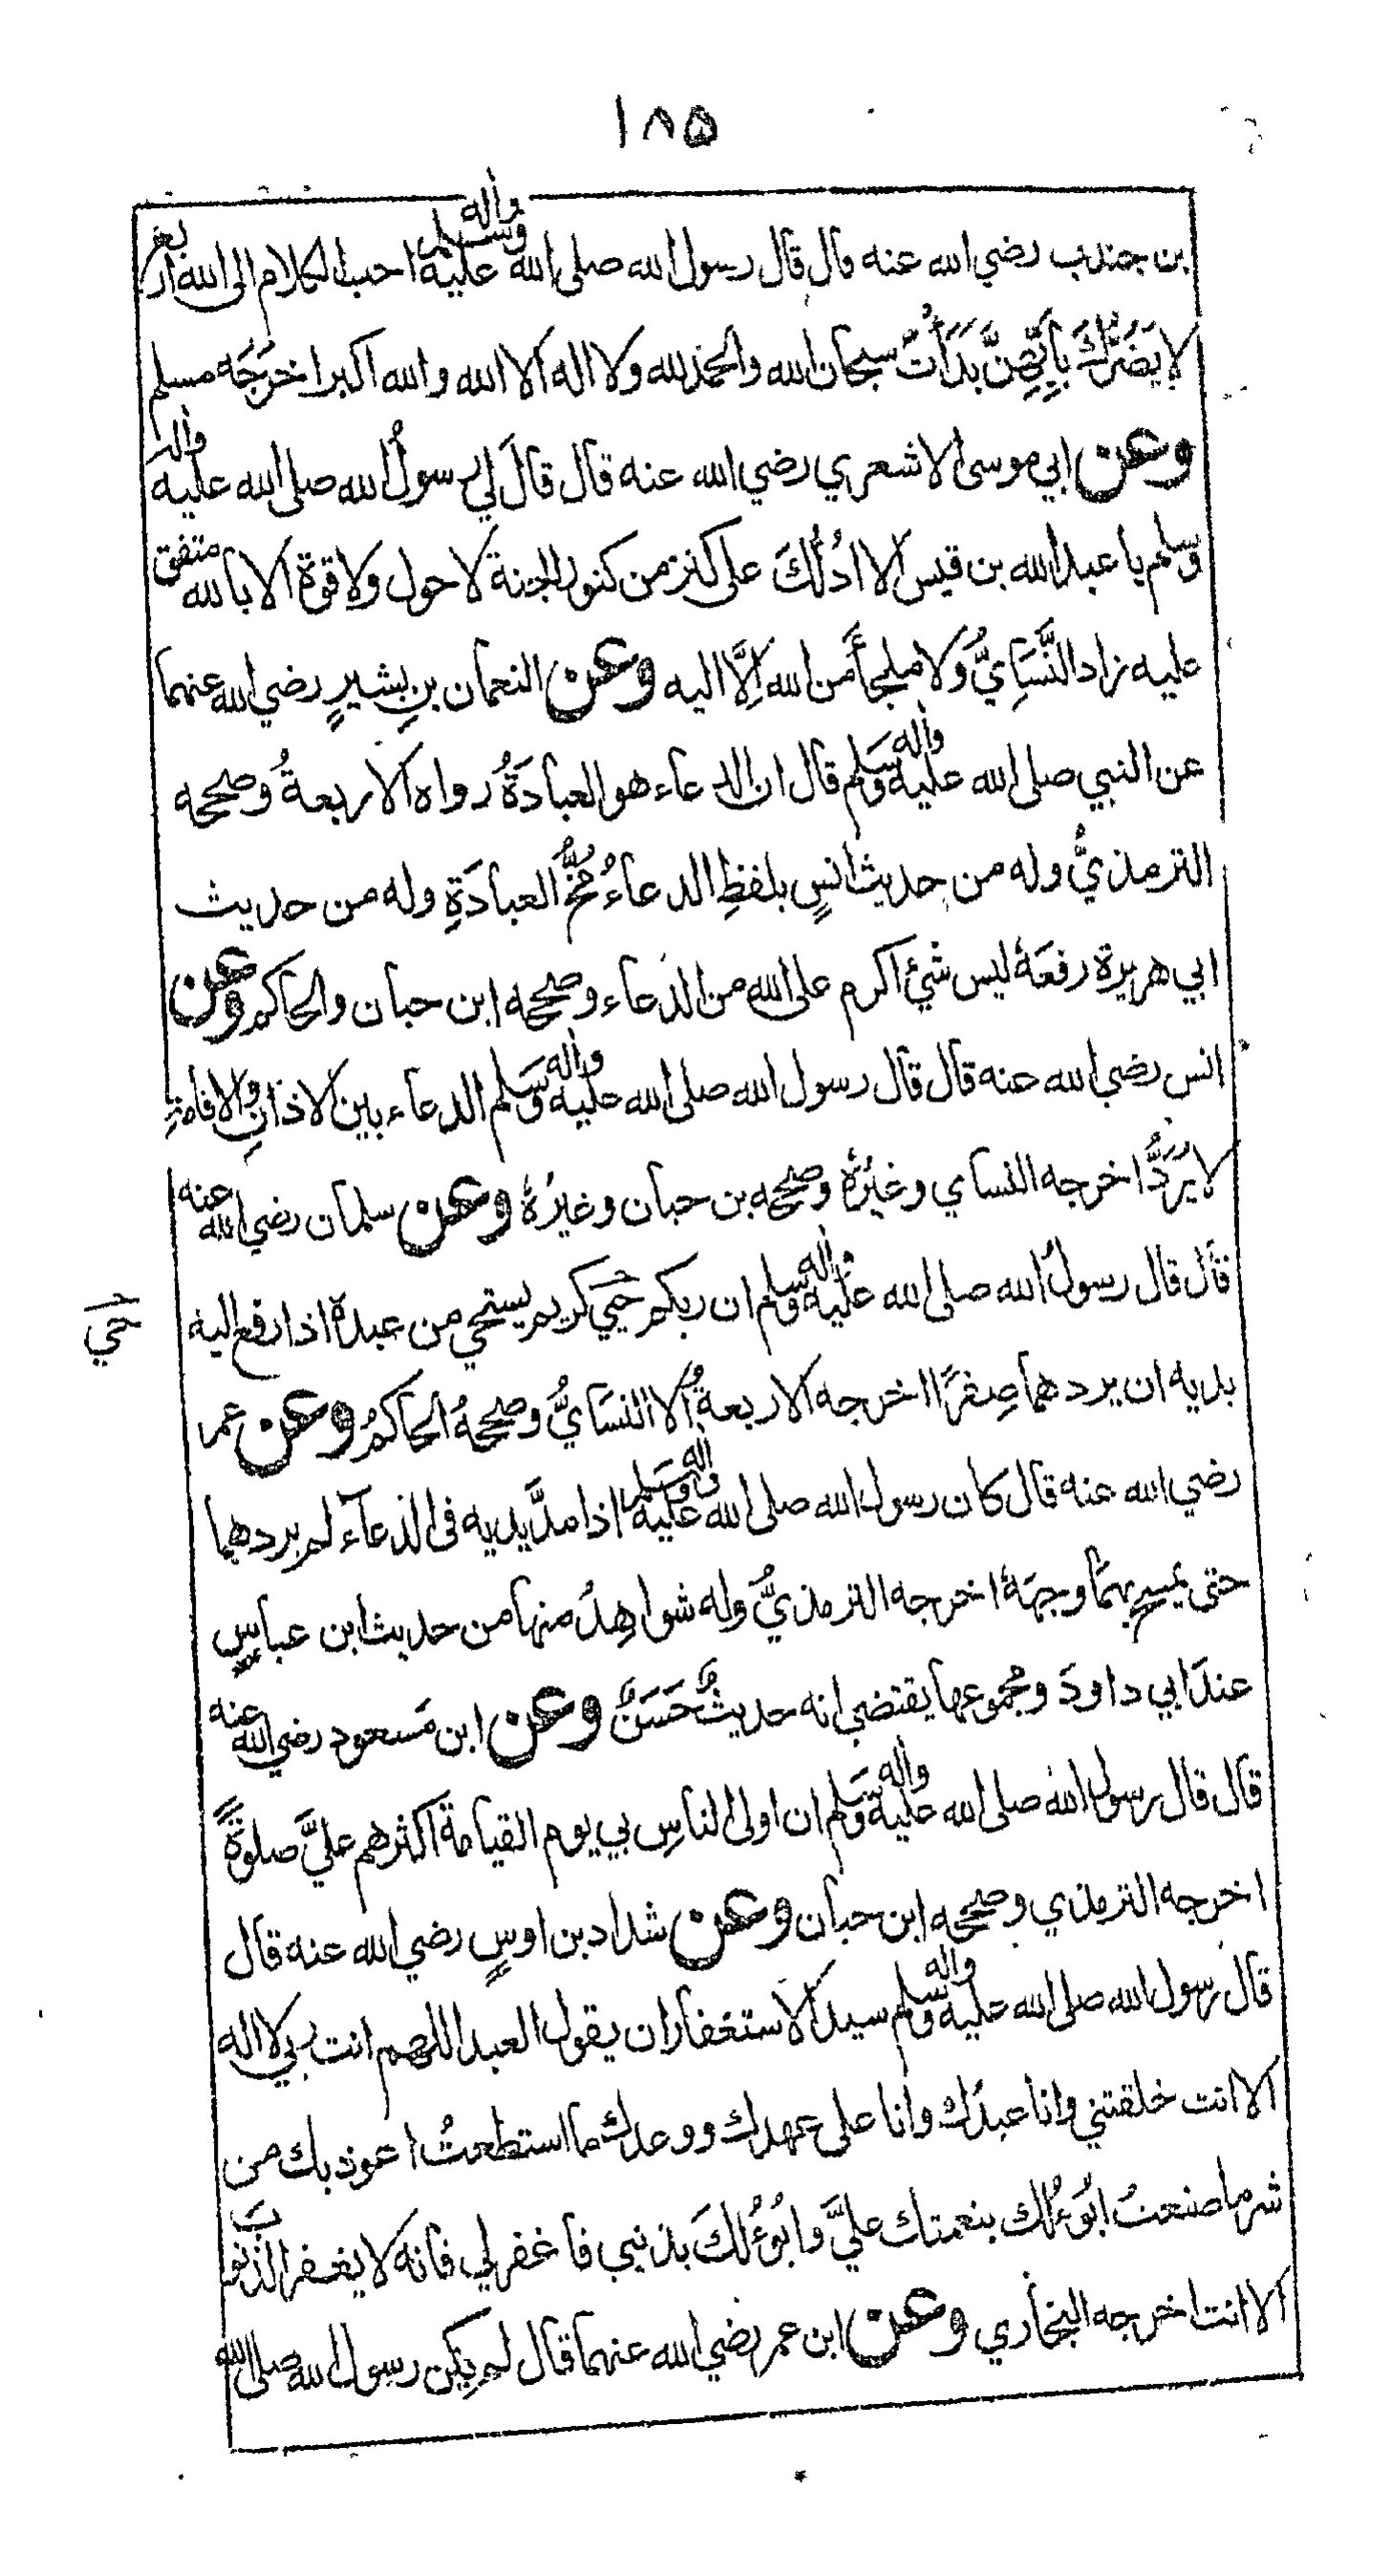 ١٨٥
بن جندب رضي الله عنه قال قال رسول الله صلى الله عليه واله وسلم احب الكلام الى الله اربع
لا يَضُرُّكَ بِأَيِّهِنَّ بَدَأْتَ سبحان الله والحمد لله ولا اله الا الله والله اكبر اخرَجَه مسلم
وعن ابي موسى الاشعري رضي الله عنه قال قالَ لي رسولُ الله صلى الله عليه واله
وسلم يا عبد الله بن قيس الا ادُلُّكَ على كنز من كنوز الجنة لا حول ولا قوة الا بالله متفق
عليه زاد النَّسَايِيُّ وَلا ملجأَ من الله اِلَّا اليه وعن النعمان بنِ بشيرٍ رضي الله عنهما
عن النبي صلى الله عليه واله وسلم قال ان الدعاء هو العبادَةُ رواه الاربعةُ وصححه
الترمذيُّ وله من حديث انسٍ بلفظِ الدعاءُ مُخُّ العبادَةِ وله من حديث
ابي هريرة رفعَهُ ليس شيئ اكرم على الله من الدعاء وصححه ابن حبان والحاكم وعن
انس رضي الله عنه قال قال رسول الله صلى الله عليه واله وسلم الدعاء بين الاذانِ والاقامةِ
لا يُرَدُّ اخرجه النساي وغيرُهُ وصححه بن حبان وغيرُهُ وعن سلمان رضي الله عنه
قال قال رسولُ الله صلى الله عليه واله وسلم ان ربكم حَيي كريم يستحي من عبده اذا رفع اليه
حَيي
يديه ان يردهما صِفرًا اخرجه الاربعةُ الا النسَايُّ وصححهُ الحاكمُ وعن عمر
رضي الله عنه قال كان رسول الله صلى الله عليه واله وسلم اذا مدَّ يديه فى الدعآء لم يردهما
حتى يمسح بهمَا وجهَهُ اخرجه الترمذيُّ وله شواهِدُ منها من حديث ابن عباسٍ
عندَ ابي داودَ ومجموعها يقتضي انه حديثٌ حَسَنٌ وعن ابن مَسعود رضي الله عنه
قال قال رسول الله صلى الله عليه واله وسلم ان اولى الناسِ بي يوم القيامة اكثرهم عليَّ صلوةً
اخرجه الترمذي وصححه ابن حبان وعن شداد بن اوسٍ رضي الله عنه قال
قال رسول الله صلى الله عليه واله وسلم سيد الاستغفار ان يقول العبد اللهم انت ربي لا اله
الا انت خلقتني وانا عبدُك وانا على عهدك ووعدك ما استطعتُ اعوذ بك من
شر ما صنعتُ ابُوءُ لك بنعمتك عليَّ وابُوءُ لكَ بذنبي فاغفر لي فانه لا يغفر الذنوبَ
الا انت اخرجه البخاري وعن ابن عمر رضي الله عنهما قال لم يكن رسول الله صلى الله